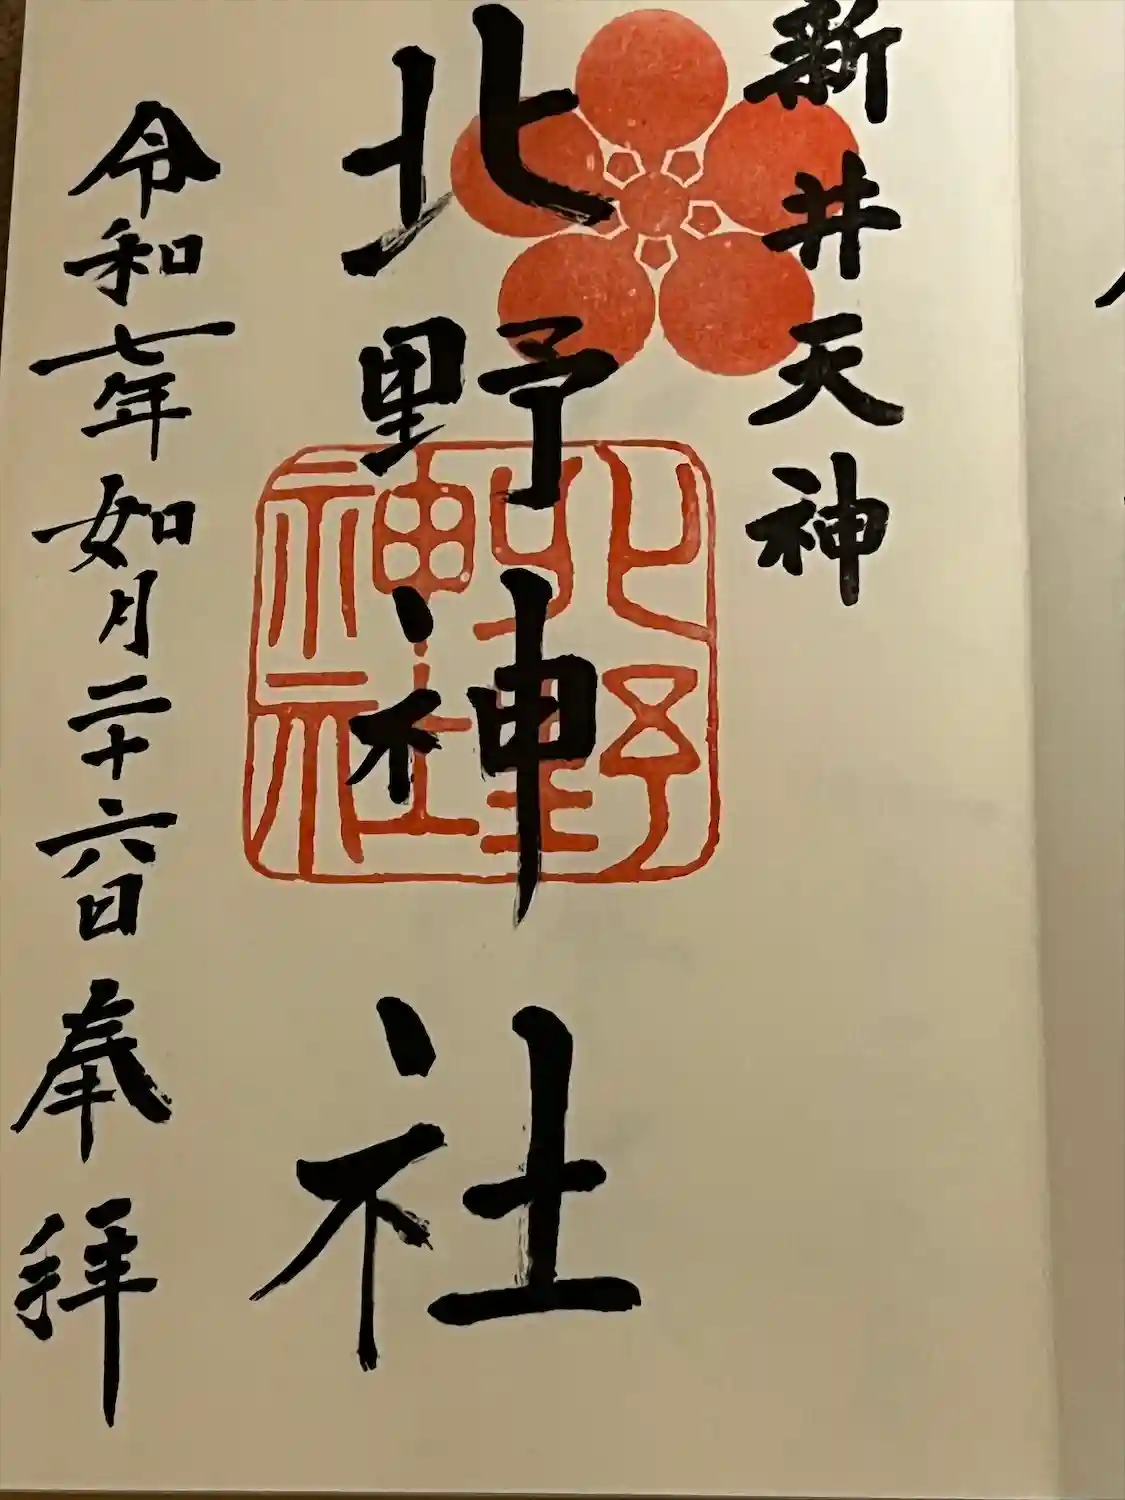 新井天神
北野神社
北野
神社
令和七年如月二十六日奉拝